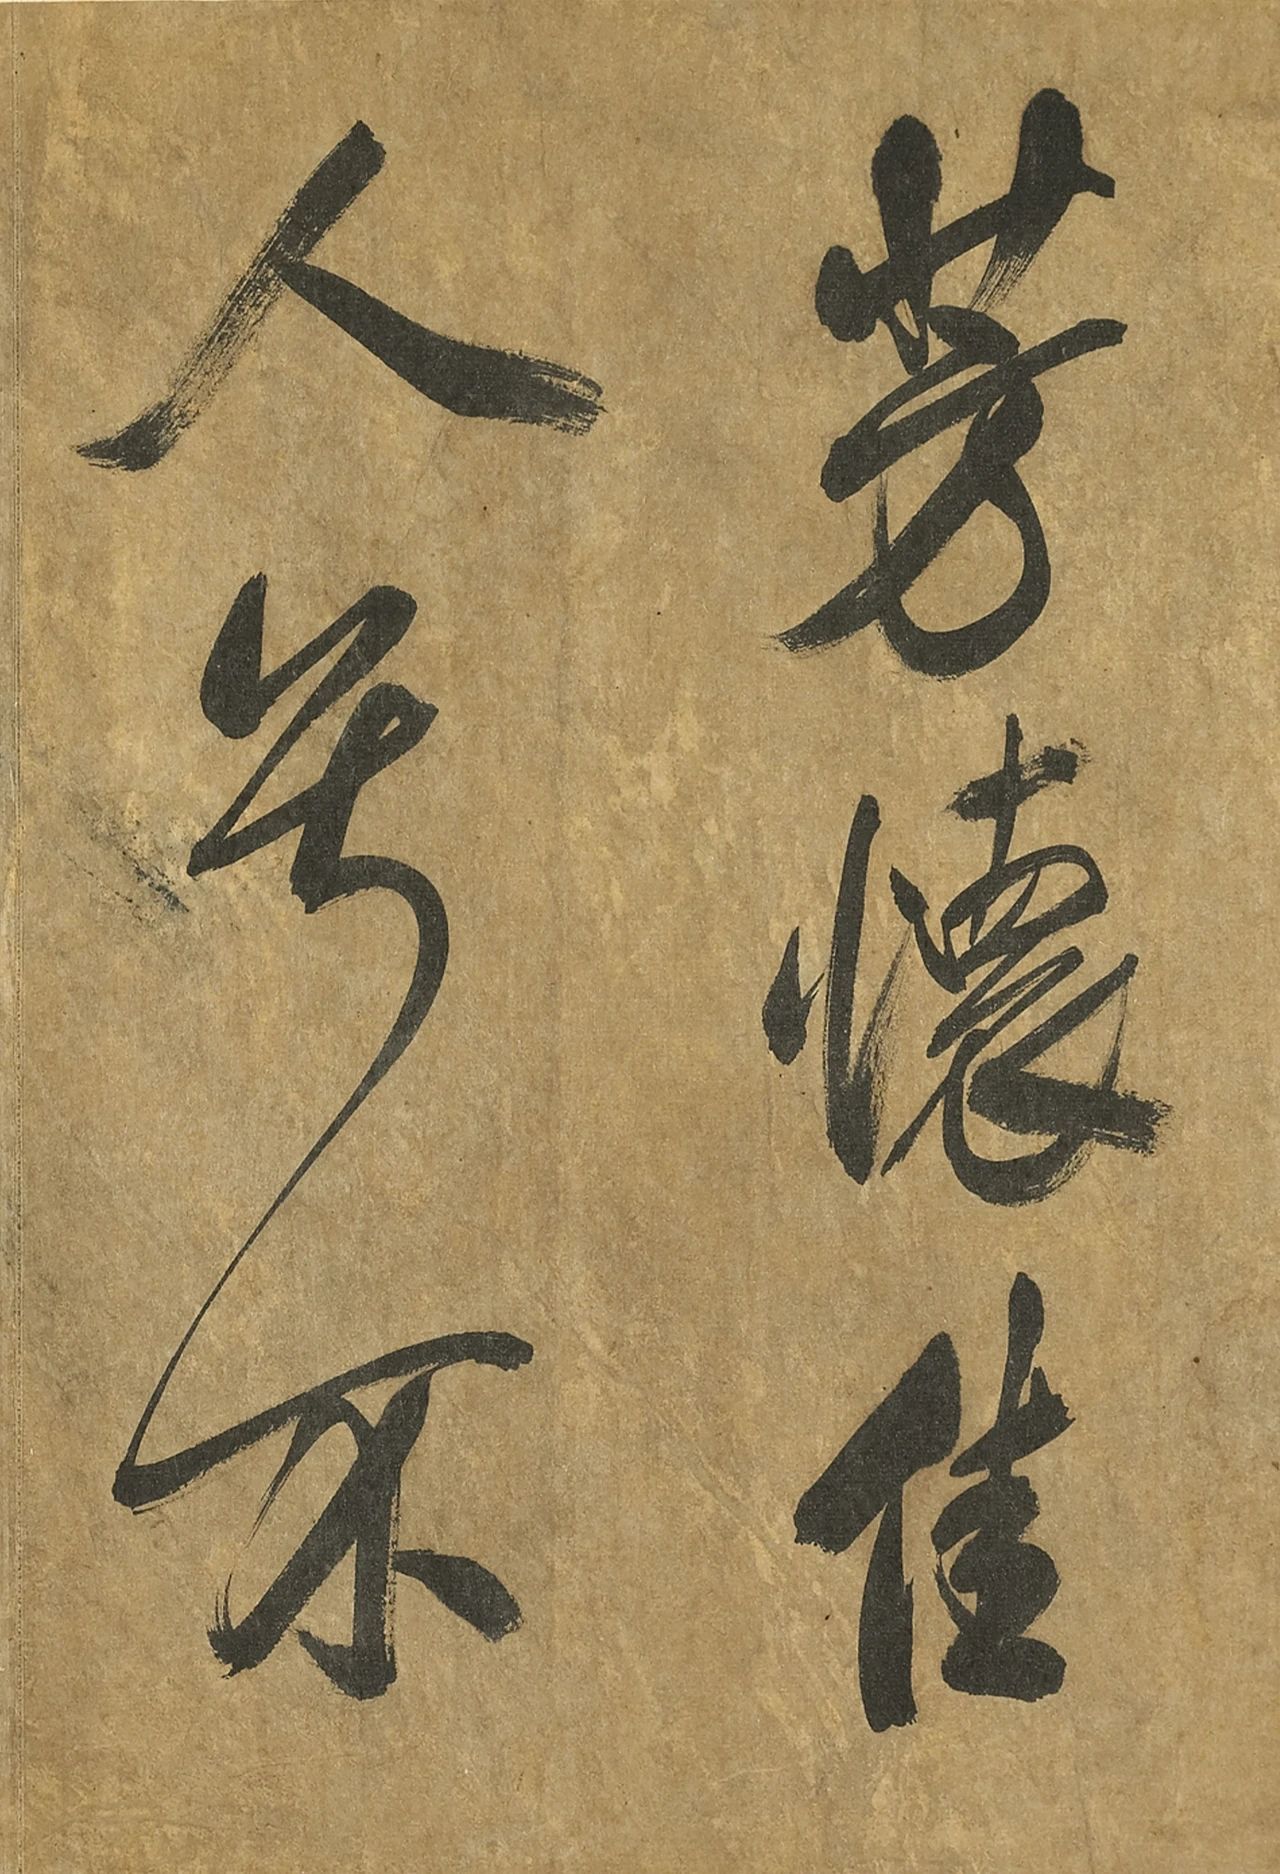 芳懷佳
人兮不